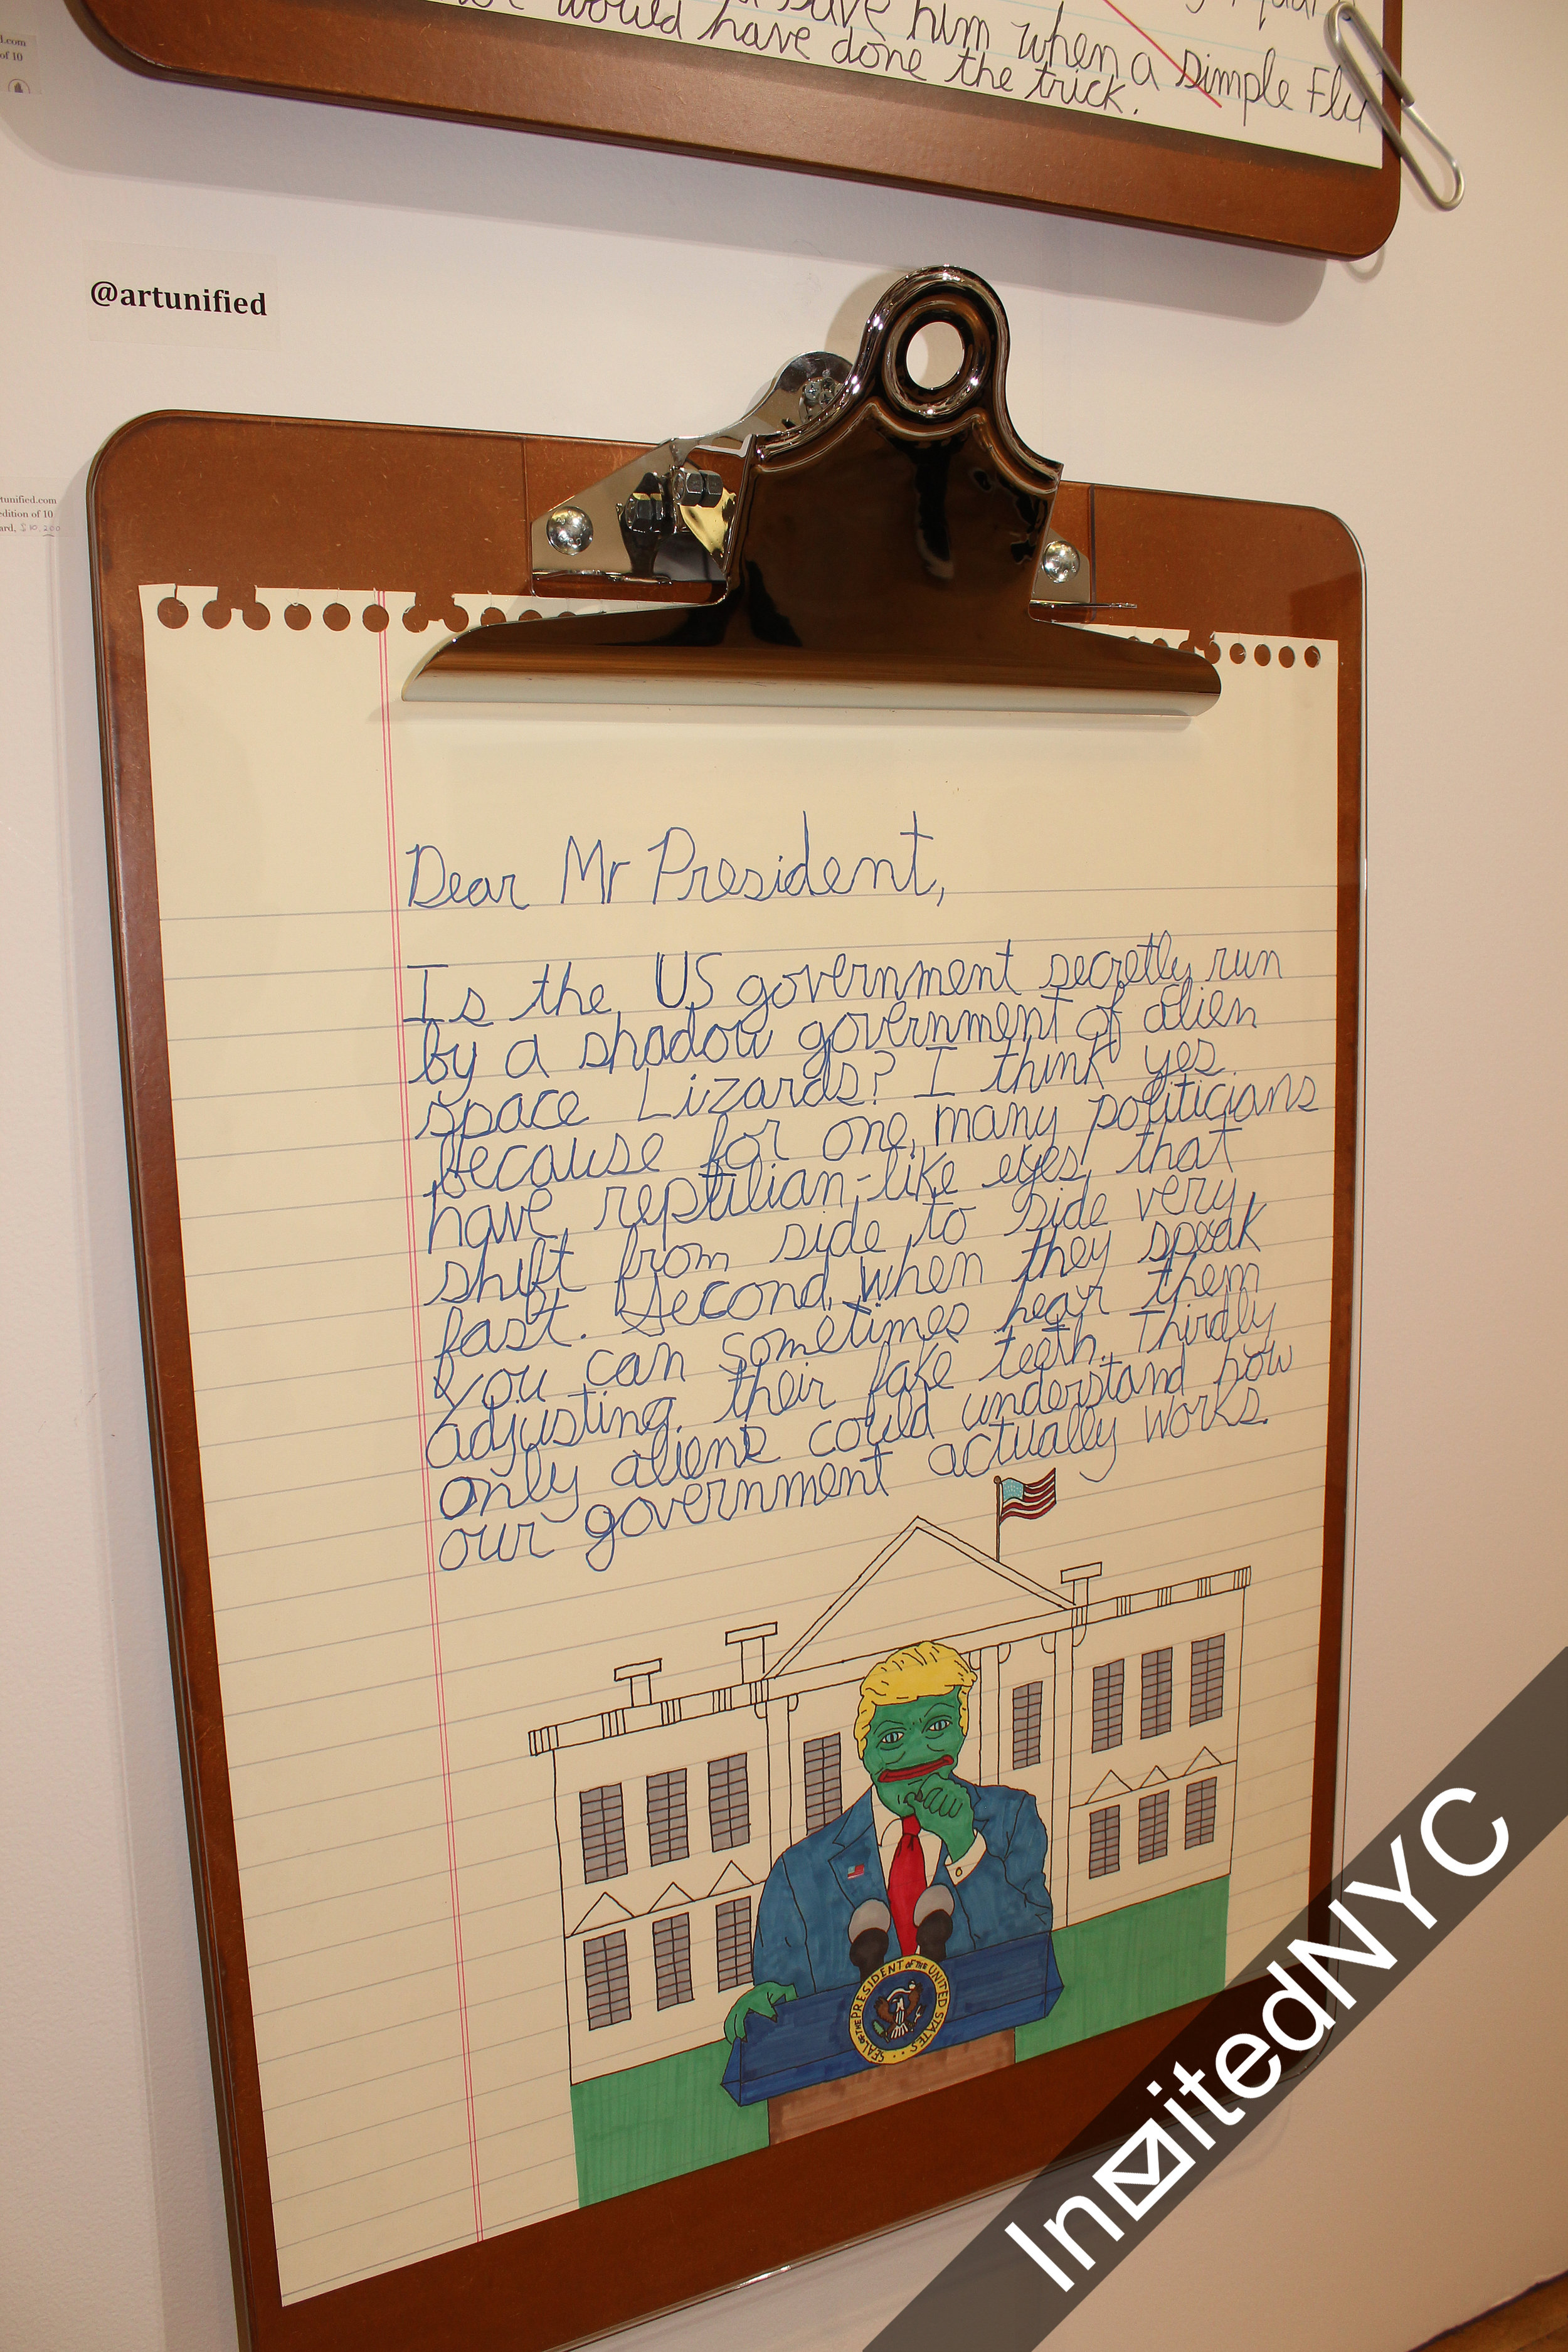 save him when a simple Flu
would have done the trick.
d.com
of 10
@artunified
tunified.com
edition of 10
ard,
Dear Mr President,
Is the US government secretly run
by a shadow government of alien
space Lizards? I think yes
because for one, many politicians
have reptilian-like eyes, that
shift from side to side very
fast. Second, when they speak
you can sometimes hear them
adjusting their fake teeth. Thirdly
only aliens could understand how
our government actually works.
SEAL OF THE PRESIDENT OF THE UNITED STATES
InvitedNYC